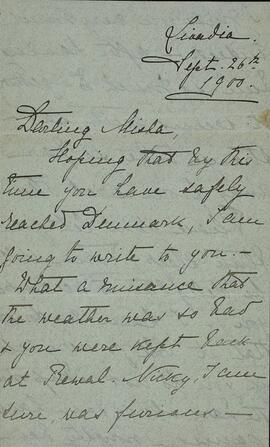 Livadia.
Sept. 26th
1900.
Darling Misha,
Hoping that by this
time you have safely
reached Denmark, I am
going to write to you. —
What a nuisance that
the weather was so bad
& you were kept back
at Reval. Nicky, I am
sure was furious —